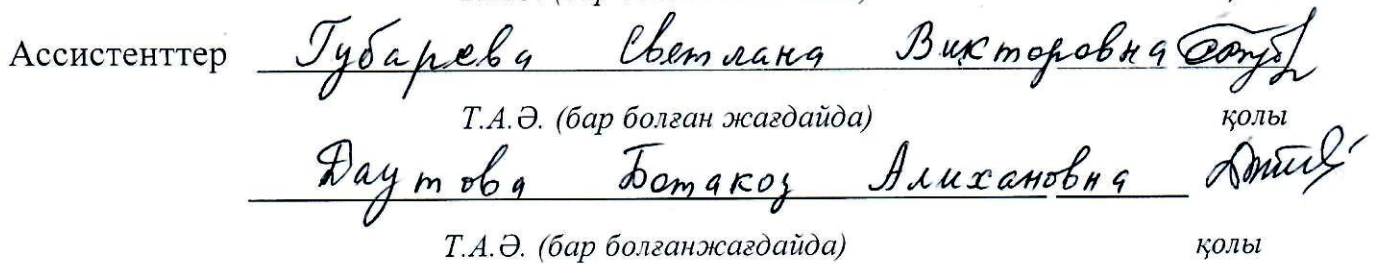 Ассистенттер Губарева Светлана Викторовна
Т.А.Ә. (бар болған жағдайда) қолы
Даутова Ботакоз Алихановна
Т.А.Ә. (бар болғанжағдайда) қолы